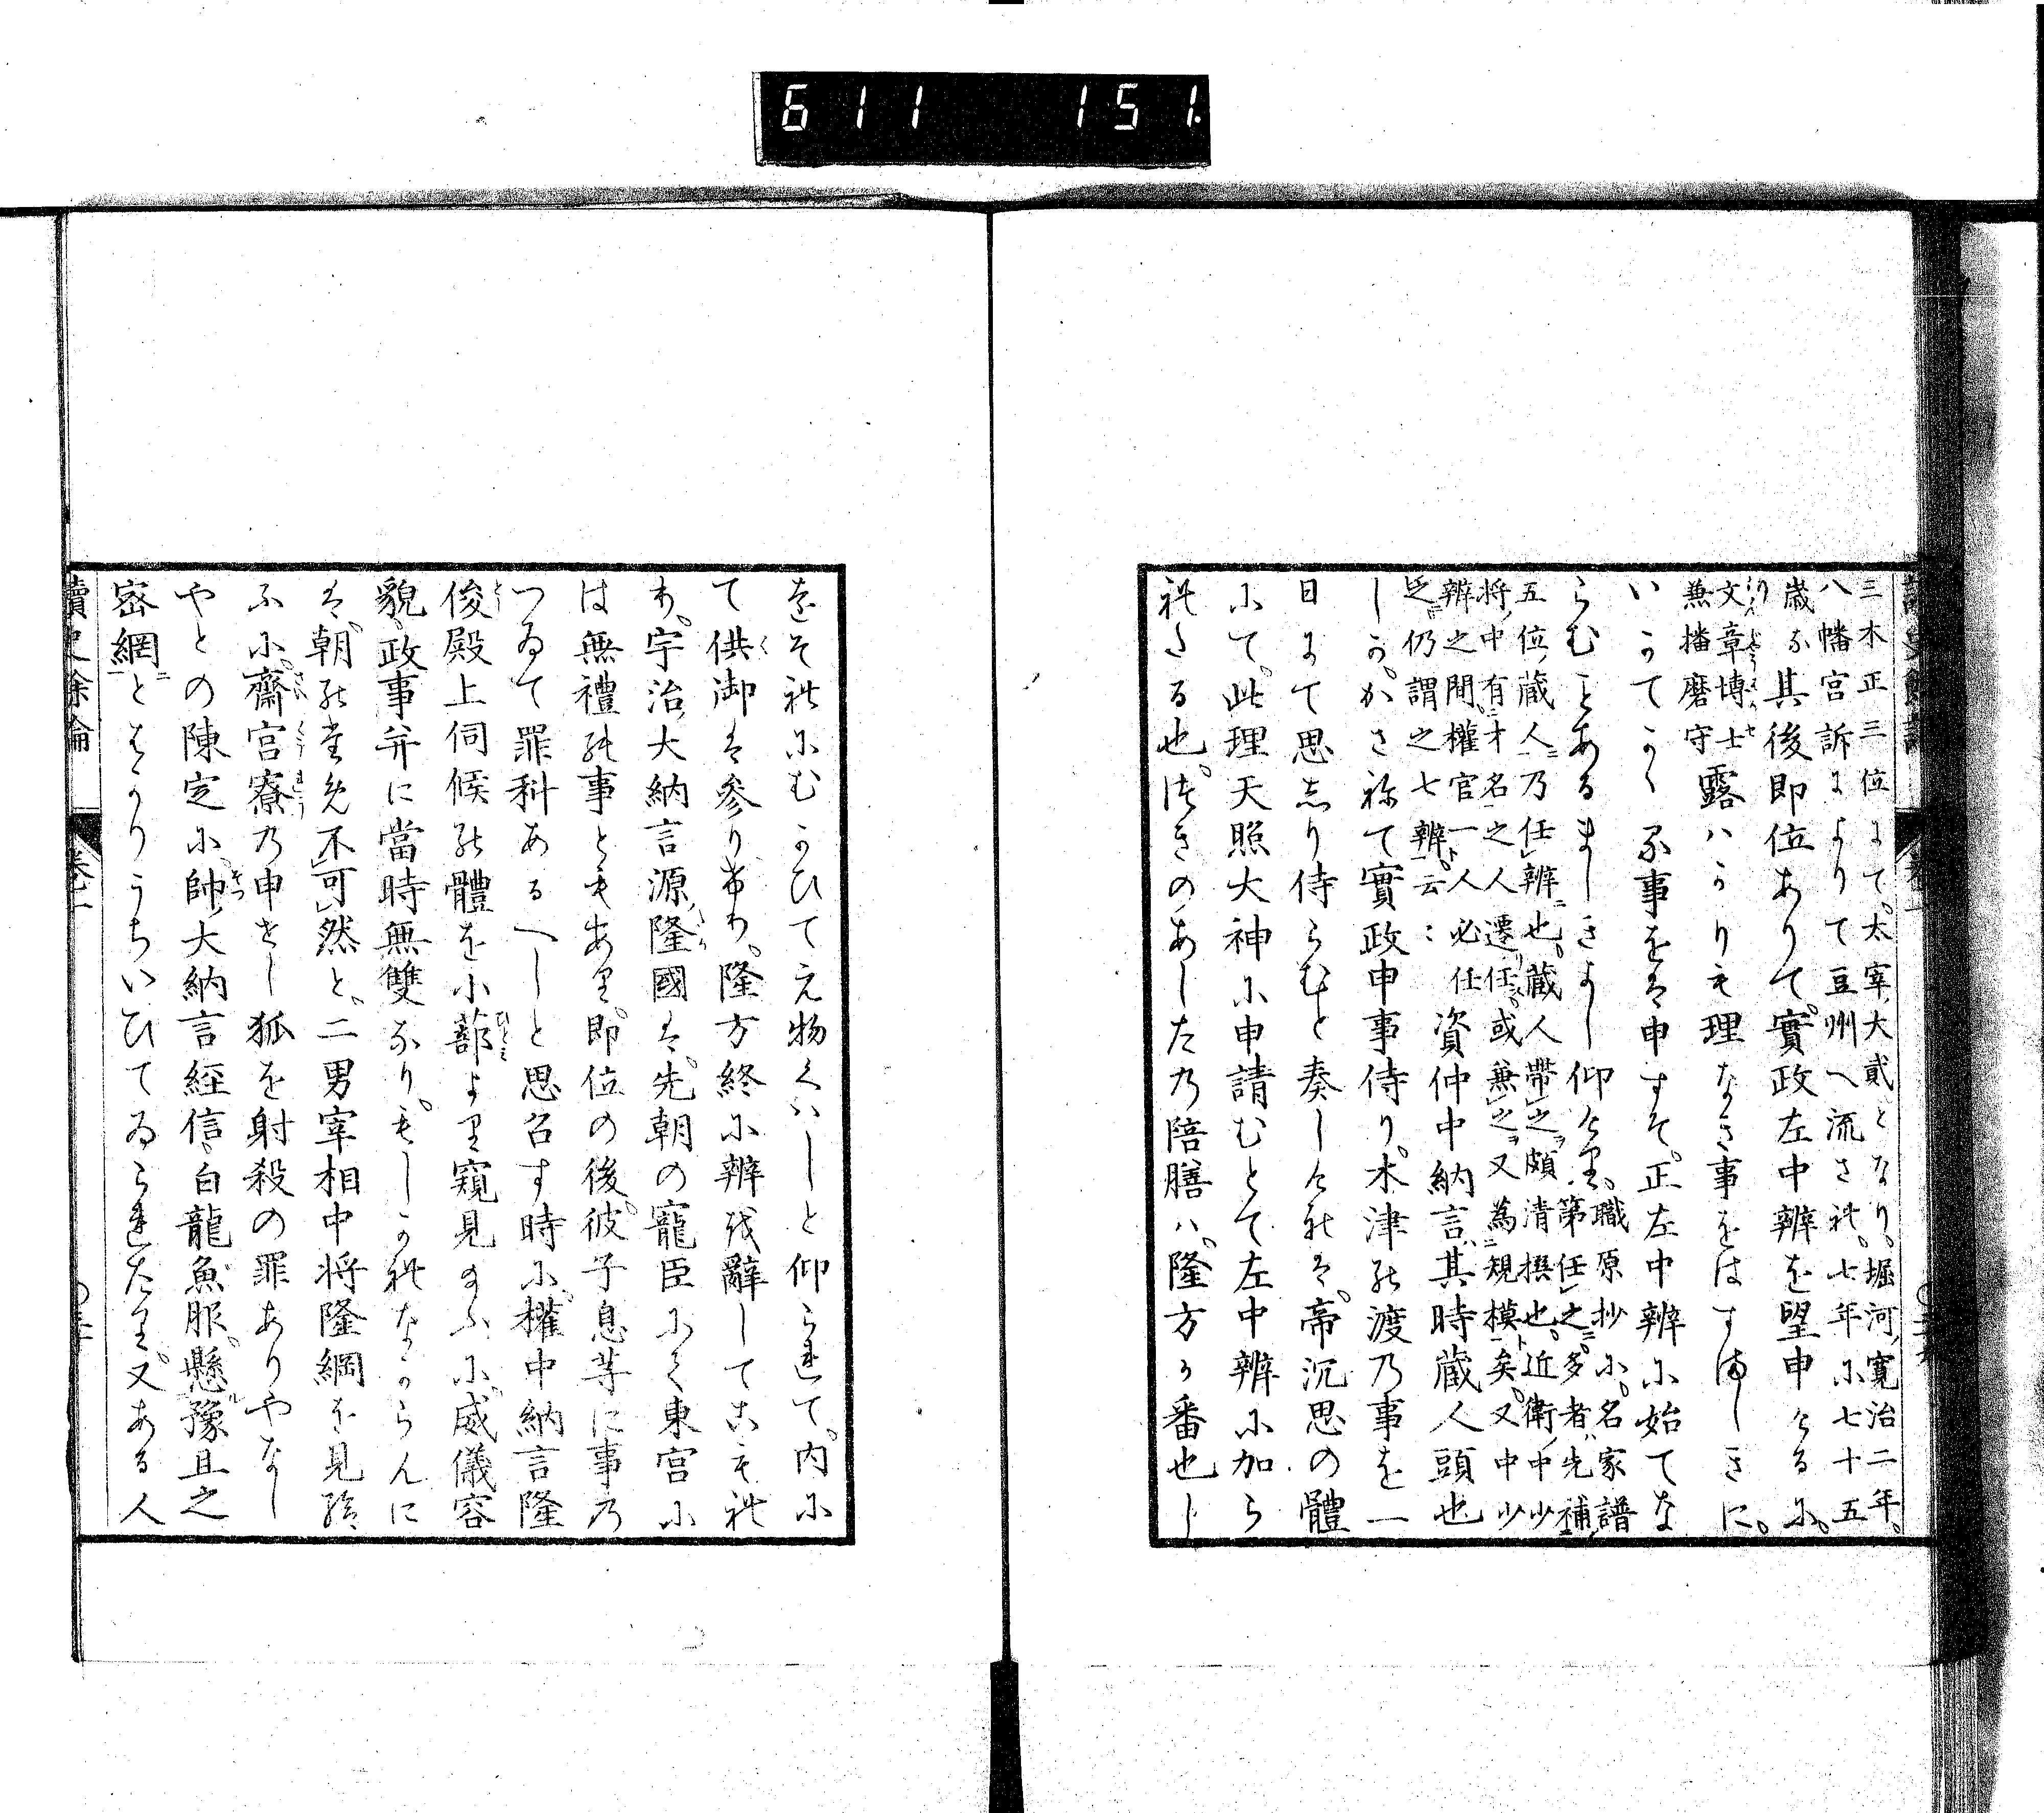 611 151
讀史餘論 卷一
三木正三位にて。太宰大貳となり。堀河寛治二年。
八幡宮訴によりて豆州へ流され。七年に七十五
歳な
り
其後即位ありて。實政左中辨を望申けるに。
文章博士
兼播磨守
露ハかりも理なき事をはすましきに。
いかてかゝる事をは申すそ。正左中辨に始てな
らむことあるましきよし仰けり。
職原抄に。名家譜
第任之。多者先補
五位蔵人乃任辨也。蔵人帶之頗清撰也。近衛中少
将中有才名之人遷任。或兼之又為規模矣。又中少
辨之間權官一人必任
之。仍謂之七辨云々
資仲中納言。其時蔵人頭也
しか。かさ祢て實政申事侍り。木津の渡乃事を一
日にて思しり侍らむと奏しけれは。帝沉思の體
にて。此理天照大神に申請むとて左中辨に加ら
れたる也。つきのあした乃陪膳ハ。隆方か番也し
をそれにむかひてえ物くハしと仰られて。内に
て供御は参りけり。隆方終に辨を辭してこもれ
り。宇治大納言源隆國は。先朝の寵臣にて東宮に
は無禮の事ともあり。即位の後。彼子息等に事乃
つゐて罪科あるへしと思召す時に。權中納言隆
俊殿上伺候の體を小蔀より窺見給ふに。威儀容
貌。政事并に當時無雙なり。もしこれなからんに
は。朝の登免不可然と。二男宰相中将隆綱を見給
ふに。齋宮寮乃申せし狐を射殺の罪ありやなし
やとの陳定に。帥大納言経信。白龍魚服。懸豫且之
密網とはかりうちいひてゐられたり。又ある人
讀史餘論 卷一